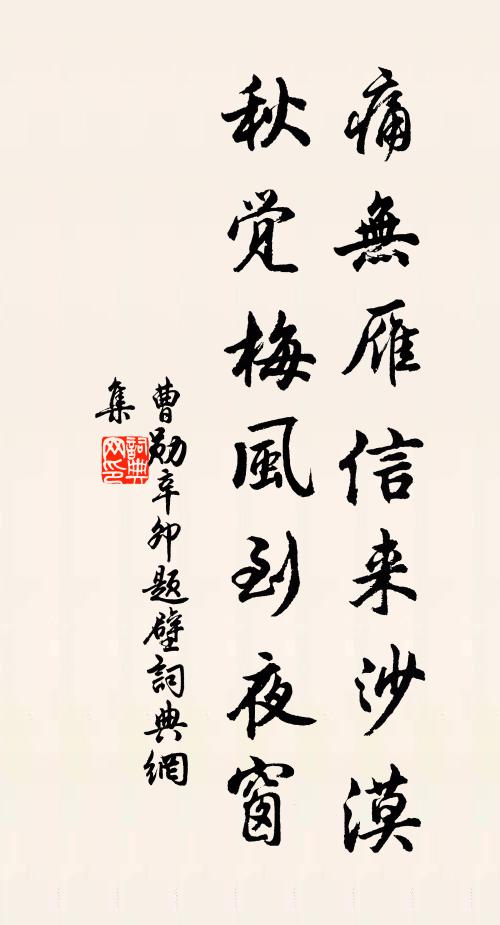 痛無雁信来沙漠
秋觉梅風到夜窗
曹勋辛卯题壁詞典網
集
詞典网印